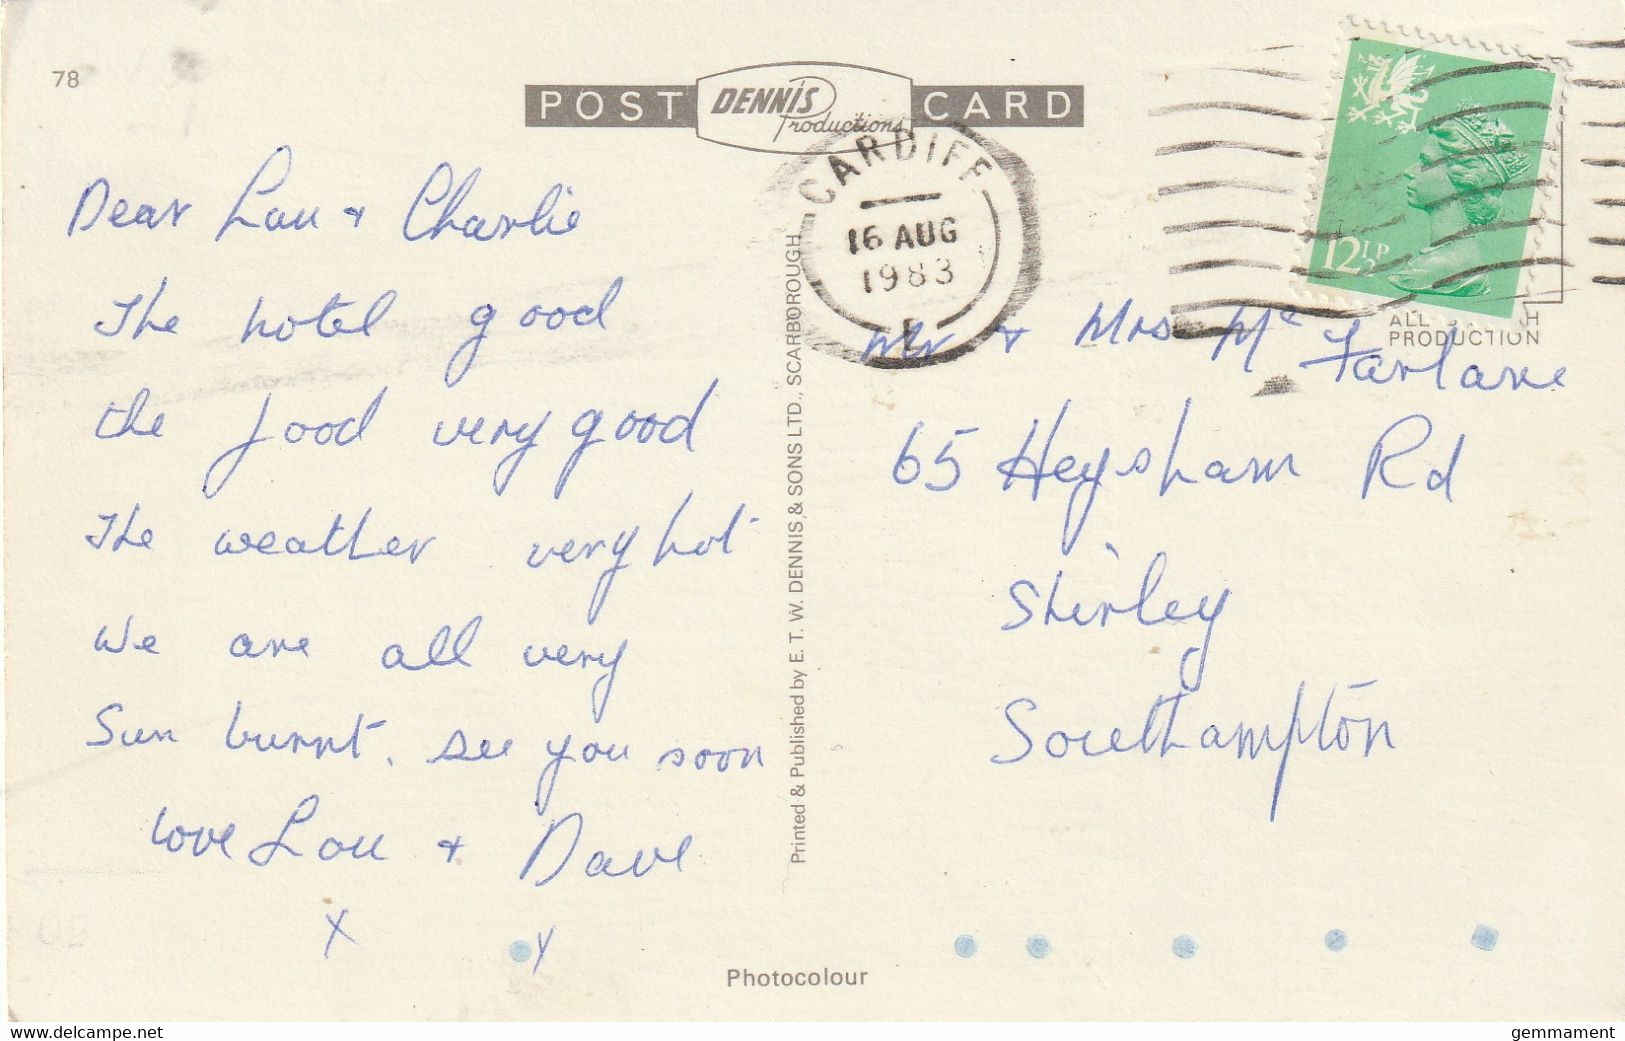 78
POST DENNIS Productions CARD
CARDIFF
16 AUG
1983
12½P
ALL
H
PRODUCTION
Dear Lou + Charlie
The hotel good
the food very good
The weather very hot
We are all very
Sun burnt. see you soon
love Lou + Dave
X
X
Printed & Published by E. T. W. DENNIS & SONS LTD., SCARBOROUGH
Mr + Mrs Mc Farlane
65 Heysham Rd
Shirley
Southampton
Photocolour
www.delcampe.net
gemmament